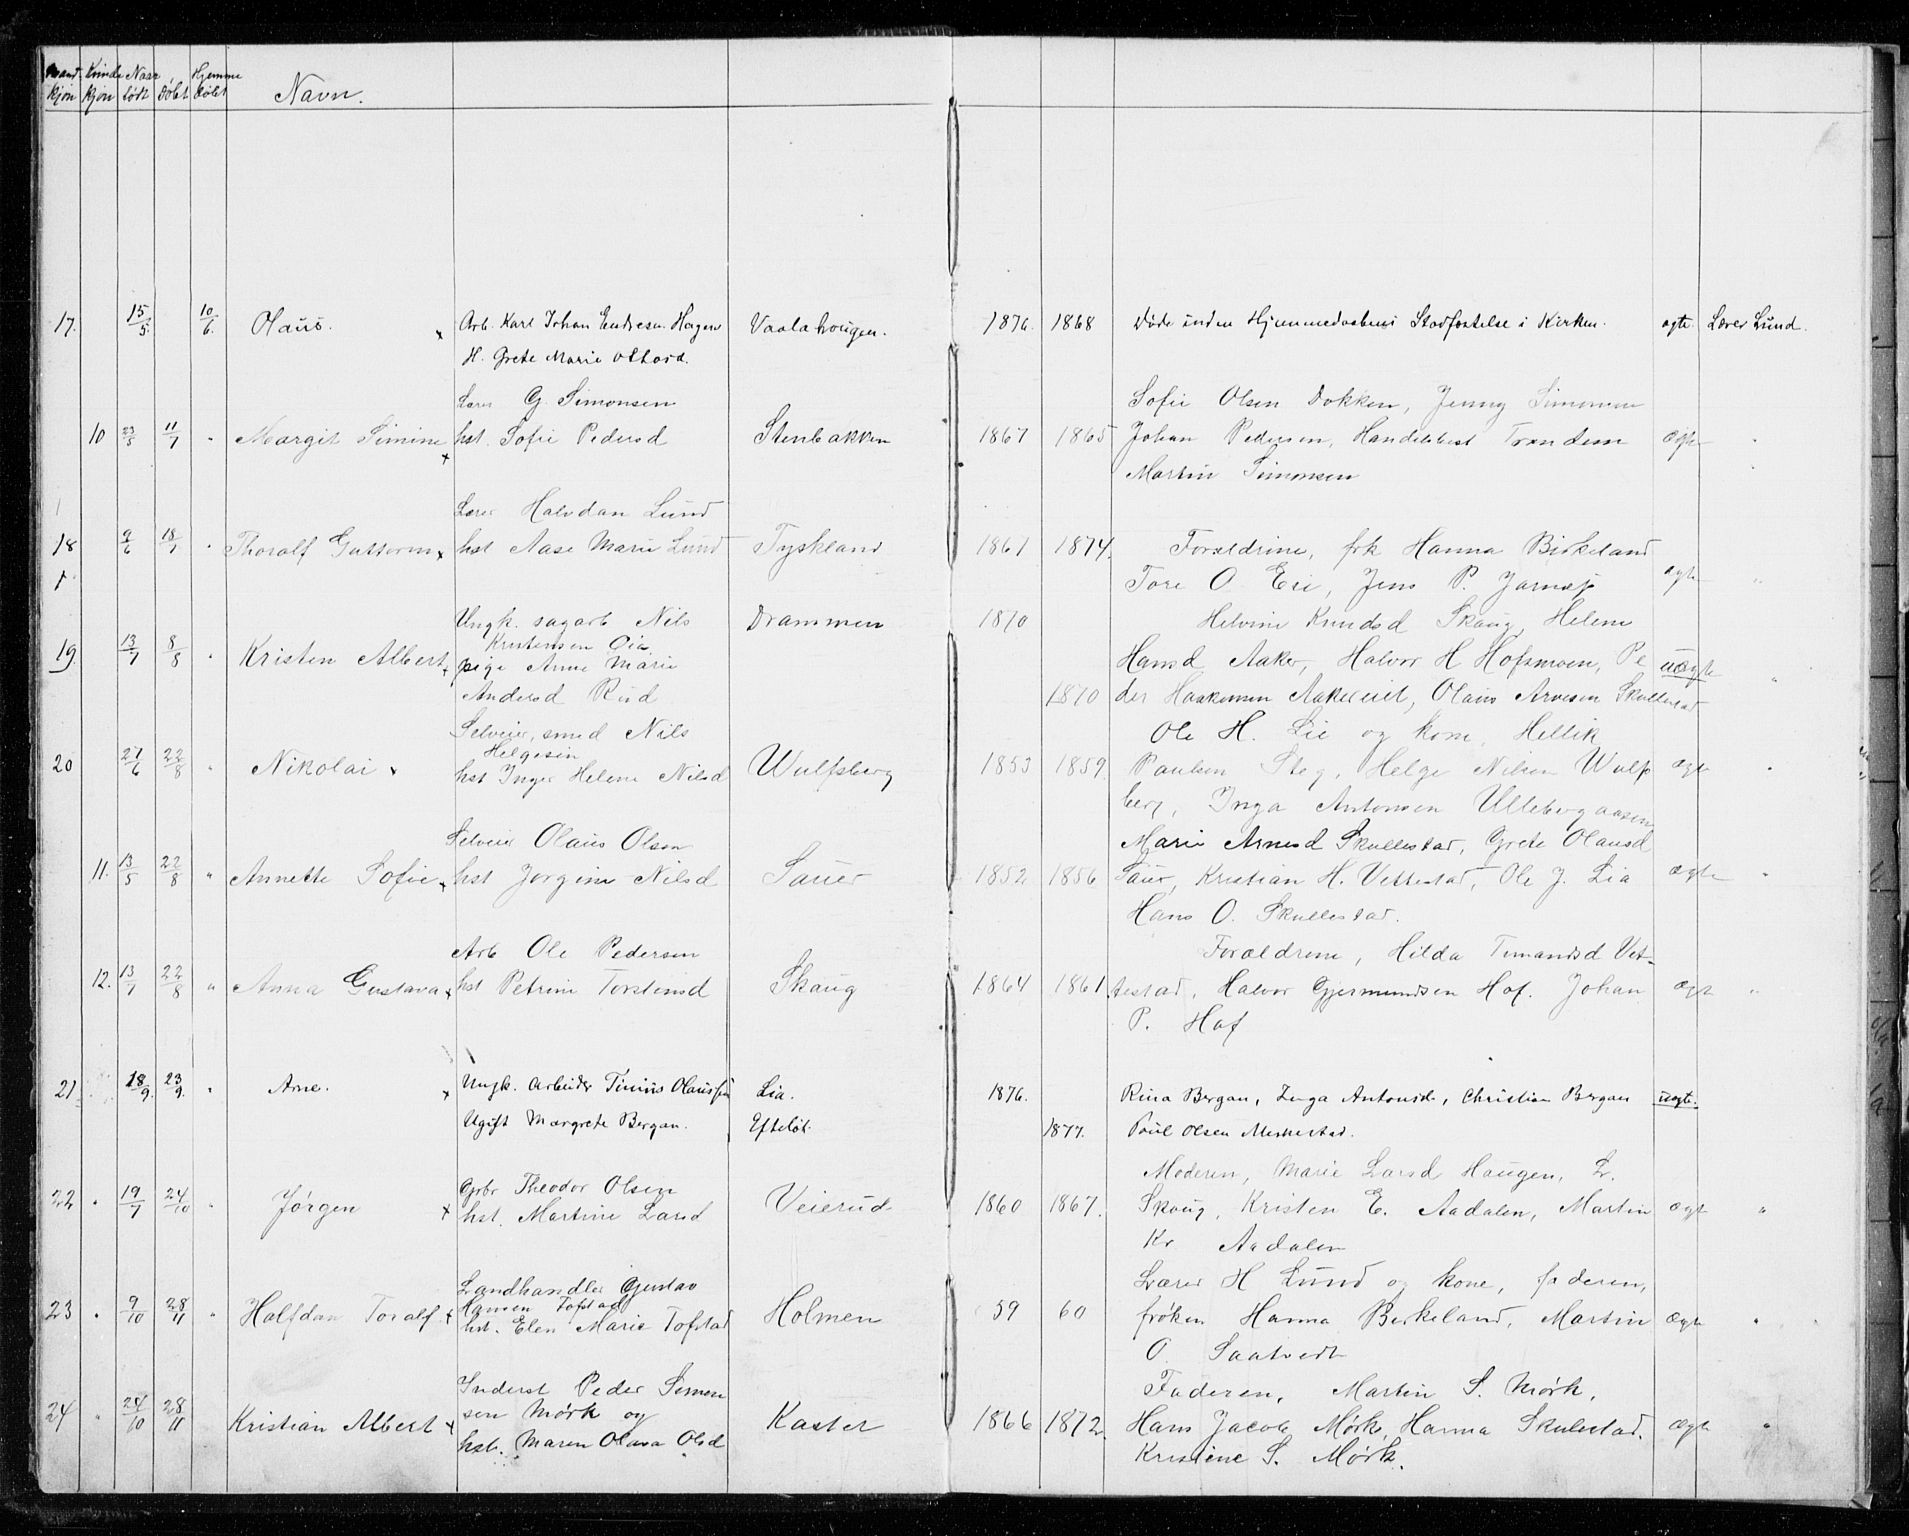 Mand Kjøn Kvinde Kjøn Naar født Døbt Hjemme døbt Navn.
Arb. Karl Johan Endresn. Hagen
17. 15/5 10/6 Olaus. x Vaalahougen. 1876. 1868 Døde inden Hjemmedaabens Stadfæstelse i Kirken. ægte. Lærer Lund.
H. Grete Marie
Lærer G. Simonsen Sofie Olsen Dokken, Jenny Simonsen
10 23/5 11/7 " Margit Simine x hst. Sofie Pedersd Stenbakken 1867 1865 Johan Pedersen, Handelsbest Trandem ægte "
Martin Simonsen
Lærer Halvdan Lund
18 9/6 18/7 " Thoralf Guttorm x hst Aase Marie Lund Tyskland 1861 1874. Forældrine, frk Hanna Birkeland
Tore O. Eri, Jens P. ægte "
Ungk. sagarb Nils Drammen 1870 Helvine Knudsd Skaug, Helene
Kristensen
19 13/7 8/8 " Kristen Albert x pige Anne Marie Hansd Aaker, Halvor H Hofsmoen, Pe uægte "
Andersd Rud 1870 der Haakonsen Olaus Arvesen Skullestad
Selveier, smed Nils Ole H. Lie og kone, Hellik
Helgesen
20 27/6 22/8 " Nikolai x hst Inger Helene Nilsd Wulfsberg 1853 1859 Paulsen Steg, Helge Nilsen Wulfs ægte "
berg, Inga Antonsen Ullebergaasen
Selveier Olaus Olsen Marie Arnesd Skullestad, Grete Olausd
11. 13/5 22/8 " Annette Sofie x hst Jørgine Nilsd Sauer 1852 1856 Sauer, Kristian H. Vettestad, Ole J. Lia ægte "
Hans O. Skullestad.
Arb Ole Pedersen Forældrene, Hilda Timandsd Vet-
12. 13/7 22/8 " Anna Gustava x hst Petrine Torstensd Skaug 1864 1861. testad, Halvor Gjermundsen Hof. Johan ægte "
P. Hof
21 18/9. 23/9. " Arne. x Ungk. Arbeider Tinius Olaussen Lia. 1876. Rina Bergan, Inga Antonsd., Christian Bergan uægte.
Ugift Margrete Bergan. Efteløt. 1877. Poul Olsen
Moderen, Marie Larsd Haugen, L.
Gbr Theodor Olsen
22 " 19/7 24/10 " Jørgen x hst. Martine Larsd Veierud 1860 1867. Skaug, Kristen E. Aadalen, Martin ægte "
Kr. Aadalen
Landhandler Gustav Lærer H Lund og kone, faderen,
Hansen Tofstad
23 " 9/10 28/11 " Halfdan Toralf x hst. Elen Marie Tofstad Holmen 59 60 frøken Hanna Birkeland, Martin ægte "
O. Saatvedt
Inderst Peder Simon Faderen, Martin S. Mørk,
24 " 24/10 28/11 Kristian Albert x sen Mørk og Kaster 1866 1872. Hans Jacob Mørk, Hanna Skulestad. ægte "
hst. Maren Olava Olsd Kristine S. Mørk.